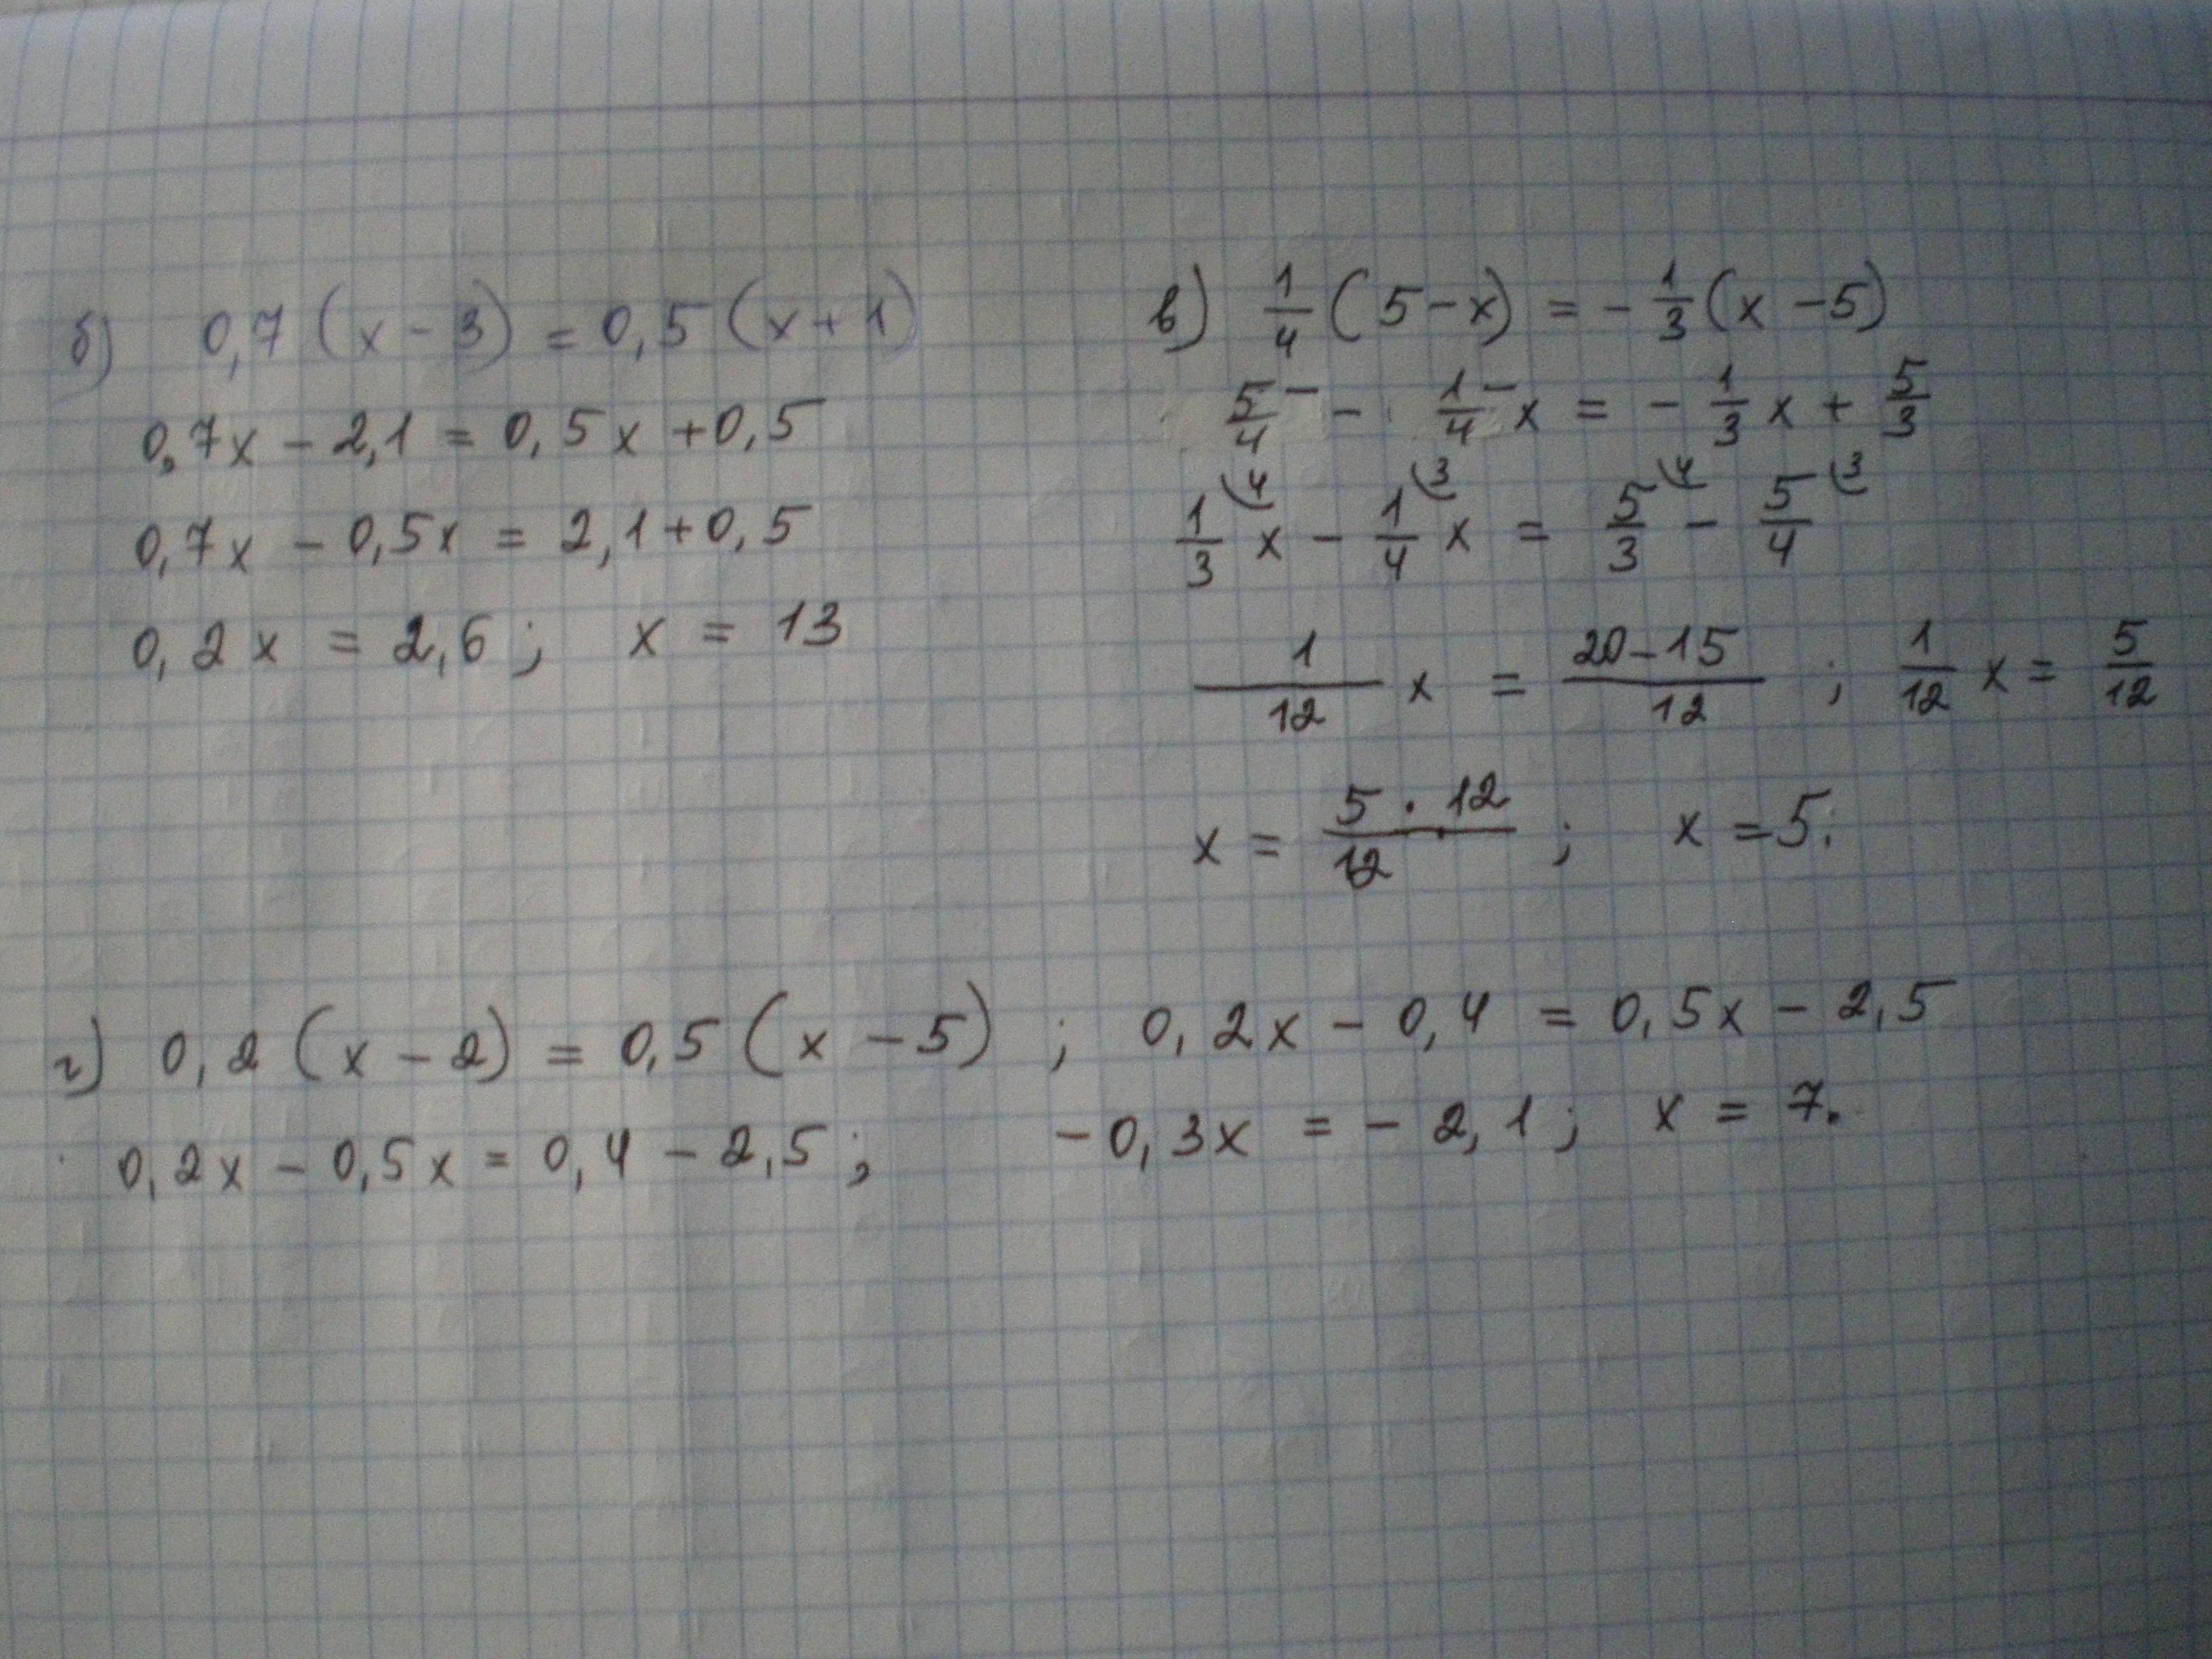 б) 0,7 (x - 3) = 0,5 (x + 1)
0,7x - 2,1 = 0,5x + 0,5
0,7x - 0,5x = 2,1 + 0,5
0,2x = 2,6 ; x = 13
в) 1/4 (5 - x) = - 1/3 (x - 5)
5/4 - 1/4 x = - 1/3 x + 5/3
1/3 (4 x - 1/4 (3 x = 5/3 (4 - 5/4 (3
1/12 x = 20-15/12 ; 1/12 x = 5/12
x = 5 · 12/12 ; x = 5.
г) 0,2 (x - 2) = 0,5 (x - 5) ; 0,2x - 0,4 = 0,5x - 2,5
0,2x - 0,5x = 0,4 - 2,5 ; - 0,3x = - 2,1 ; x = 7.